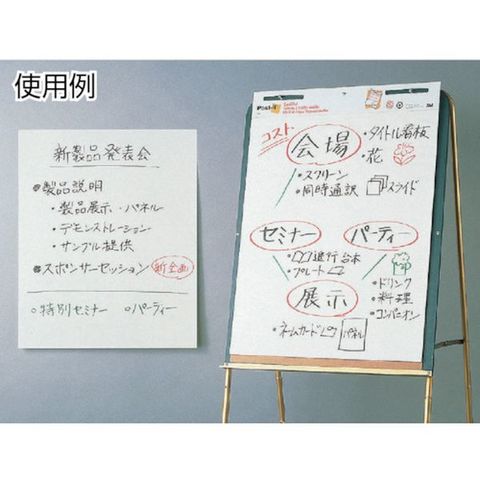 使用例
新製品発表会
●製品説明
・製品展示・パネル
・デモンストレーション
・サンプル提供
●スポンサーセッション 新企画
○特別セミナー ○パーティー
Post-it
コスト
会場
・タイトル看板
・花
・スクリーン
・同時通訳
スライド
セミナー
パーティー
進行台本
・プレート
・ドリンク
・料理
・コンパニオン
展示
・ネームカード
パネル